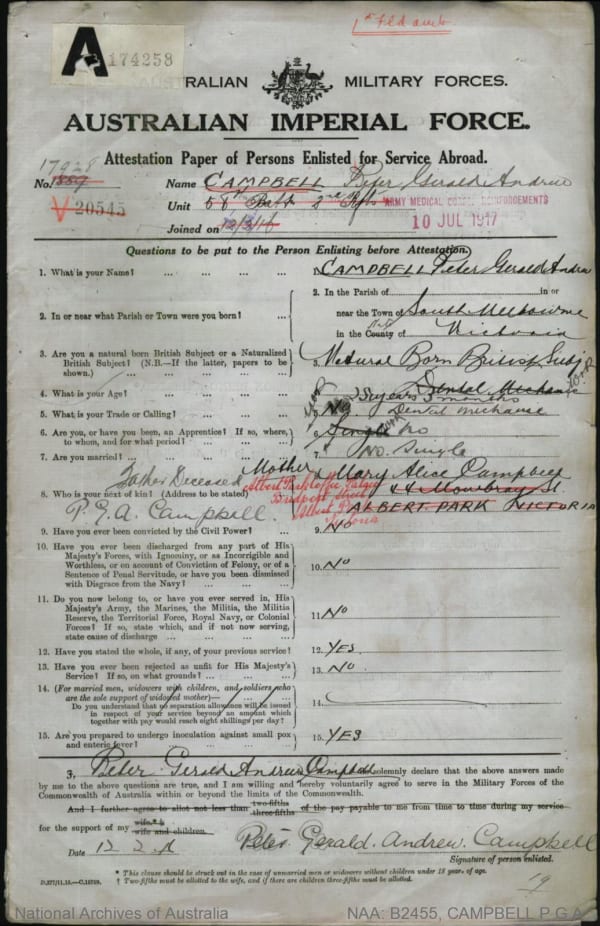 1st Fld amb
A 174258
AUSTRALIAN MILITARY FORCES.
AUSTRALIAN IMPERIAL FORCE.
Attestation Paper of Persons Enlisted for Service Abroad.
17928
No. 1889 Name CAMPBELL Peter Gerald Andrew
V 20545 Unit 58th Battn 2nd Rfts ARMY MEDICAL CORPS REINFORCEMENTS
Joined on 12/2/16 10 JUL 1917
Questions to be put to the Person Enlisting before Attestation.
1. What is your Name? ... ... ... ... 1. CAMPBELL Peter Gerald Andrew
2. In or near what Parish or Town were you born? ... 2. In the Parish of in or
near the Town of South Melbourne
in the County of State Victoria
3. Are you a natural born British Subject or a Naturalized British Subject? (N.B.—If the latter, papers to be shown.) ... ... ... 3. Natural Born British Subj
4. What is your Age? ... ... ... ... years 3 months
Dental Mechanic
5. What is your Trade or Calling? ... ... ... 5. No Dental Mechanic
6. Are you, or have you been, an Apprentice? If so, where, to whom, and for what period? ... ... ... 6. Single No
7. Are you married? ... ... ... ... 7. No. Single
Father Deceased Mother Mary Alice Campbell
8. Who is your next of kin? (Address to be stated) 44 Mowbray St.
P. G. A. Campbell. ALBERT PARK VICTORIA
Bridport Street
Albert Park
9. Have you ever been convicted by the Civil Power? ... 9. No
10. Have you ever been discharged from any part of His Majesty's Forces, with Ignominy, or as Incorrigible and Worthless, or on account of Conviction of Felony, or of a Sentence of Penal Servitude, or have you been dismissed with Disgrace from the Navy? ... ... 10. No
11. Do you now belong to, or have you ever served in, His Majesty's Army, the Marines, the Militia, the Militia Reserve, the Territorial Force, Royal Navy, or Colonial Forces? If so, state which, and if not now serving, state cause of discharge ... ... ... 11. No
12. Have you stated the whole, if any, of your previous service? 12. YES
13. Have you ever been rejected as unfit for His Majesty's Service? If so, on what grounds? ... ... 13. No
14. (For married men, widowers with children, and soldiers who are the sole support of widowed mother)—
Do you understand that no separation allowance will be issued in respect of your service beyond an amount which together with pay would reach eight shillings per day? 14.
15. Are you prepared to undergo inoculation against small pox and enteric fever? ... ... ... 15. YES
I, Peter Gerald Andrew Campbell solemnly declare that the above answers made
by me to the above questions are true, and I am willing and hereby voluntarily agree to serve in the Military Forces of the
Commonwealth of Australia within or beyond the limits of the Commonwealth.
And I further agree to allot not less than two-fifths three-fifths of the pay payable to me from time to time during my service
for the support of my wife.* wife and children.
Date 12.2. Peter Gerald. Andrew. Campbell
Signature of person enlisted.
* This clause should be struck out in the case of unmarried men or widowers without children under 18 years of age.
† Two-fifths must be allotted to the wife, and if there are children three-fifths must be allotted.
19
National Archives of Australia NAA: B2455, CAMPBELL P G A